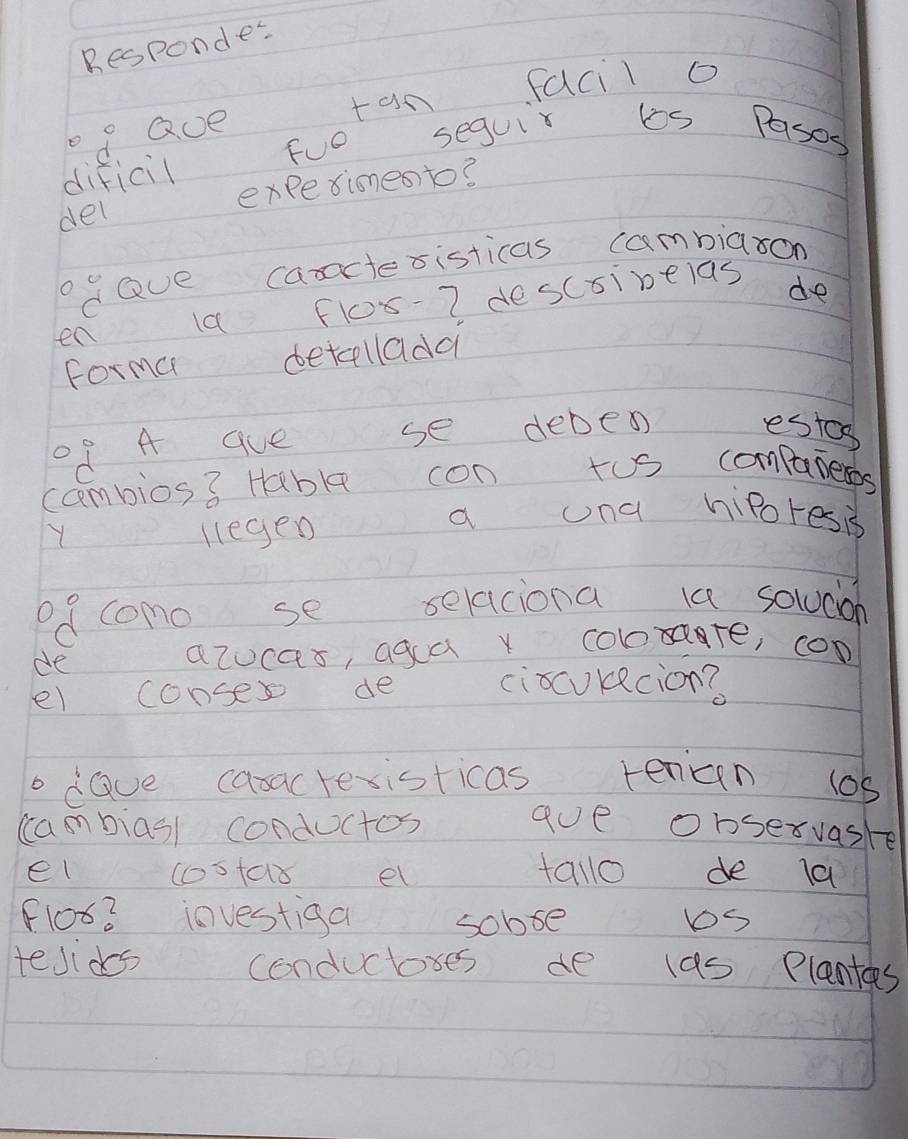 Responde:
¿Que tan facil o
dificil fue seguir los Pasos
del experimento?
¿Que caracteristicas cambiaron
en la flor-? describelas de
forma detallada
¿A que se deben estos
cambios? Habla con tus compañeros
y llegen a una hipotesis
¿como se relaciona la solución
de azucar, agua y colorante, con
el conser de circulacion?
¿Que caracteristicas tenian los
cambias/ conductos que observaste
el cortar el tallo de la
flor? investiga sobre los
tejidos conductores de las Plantas